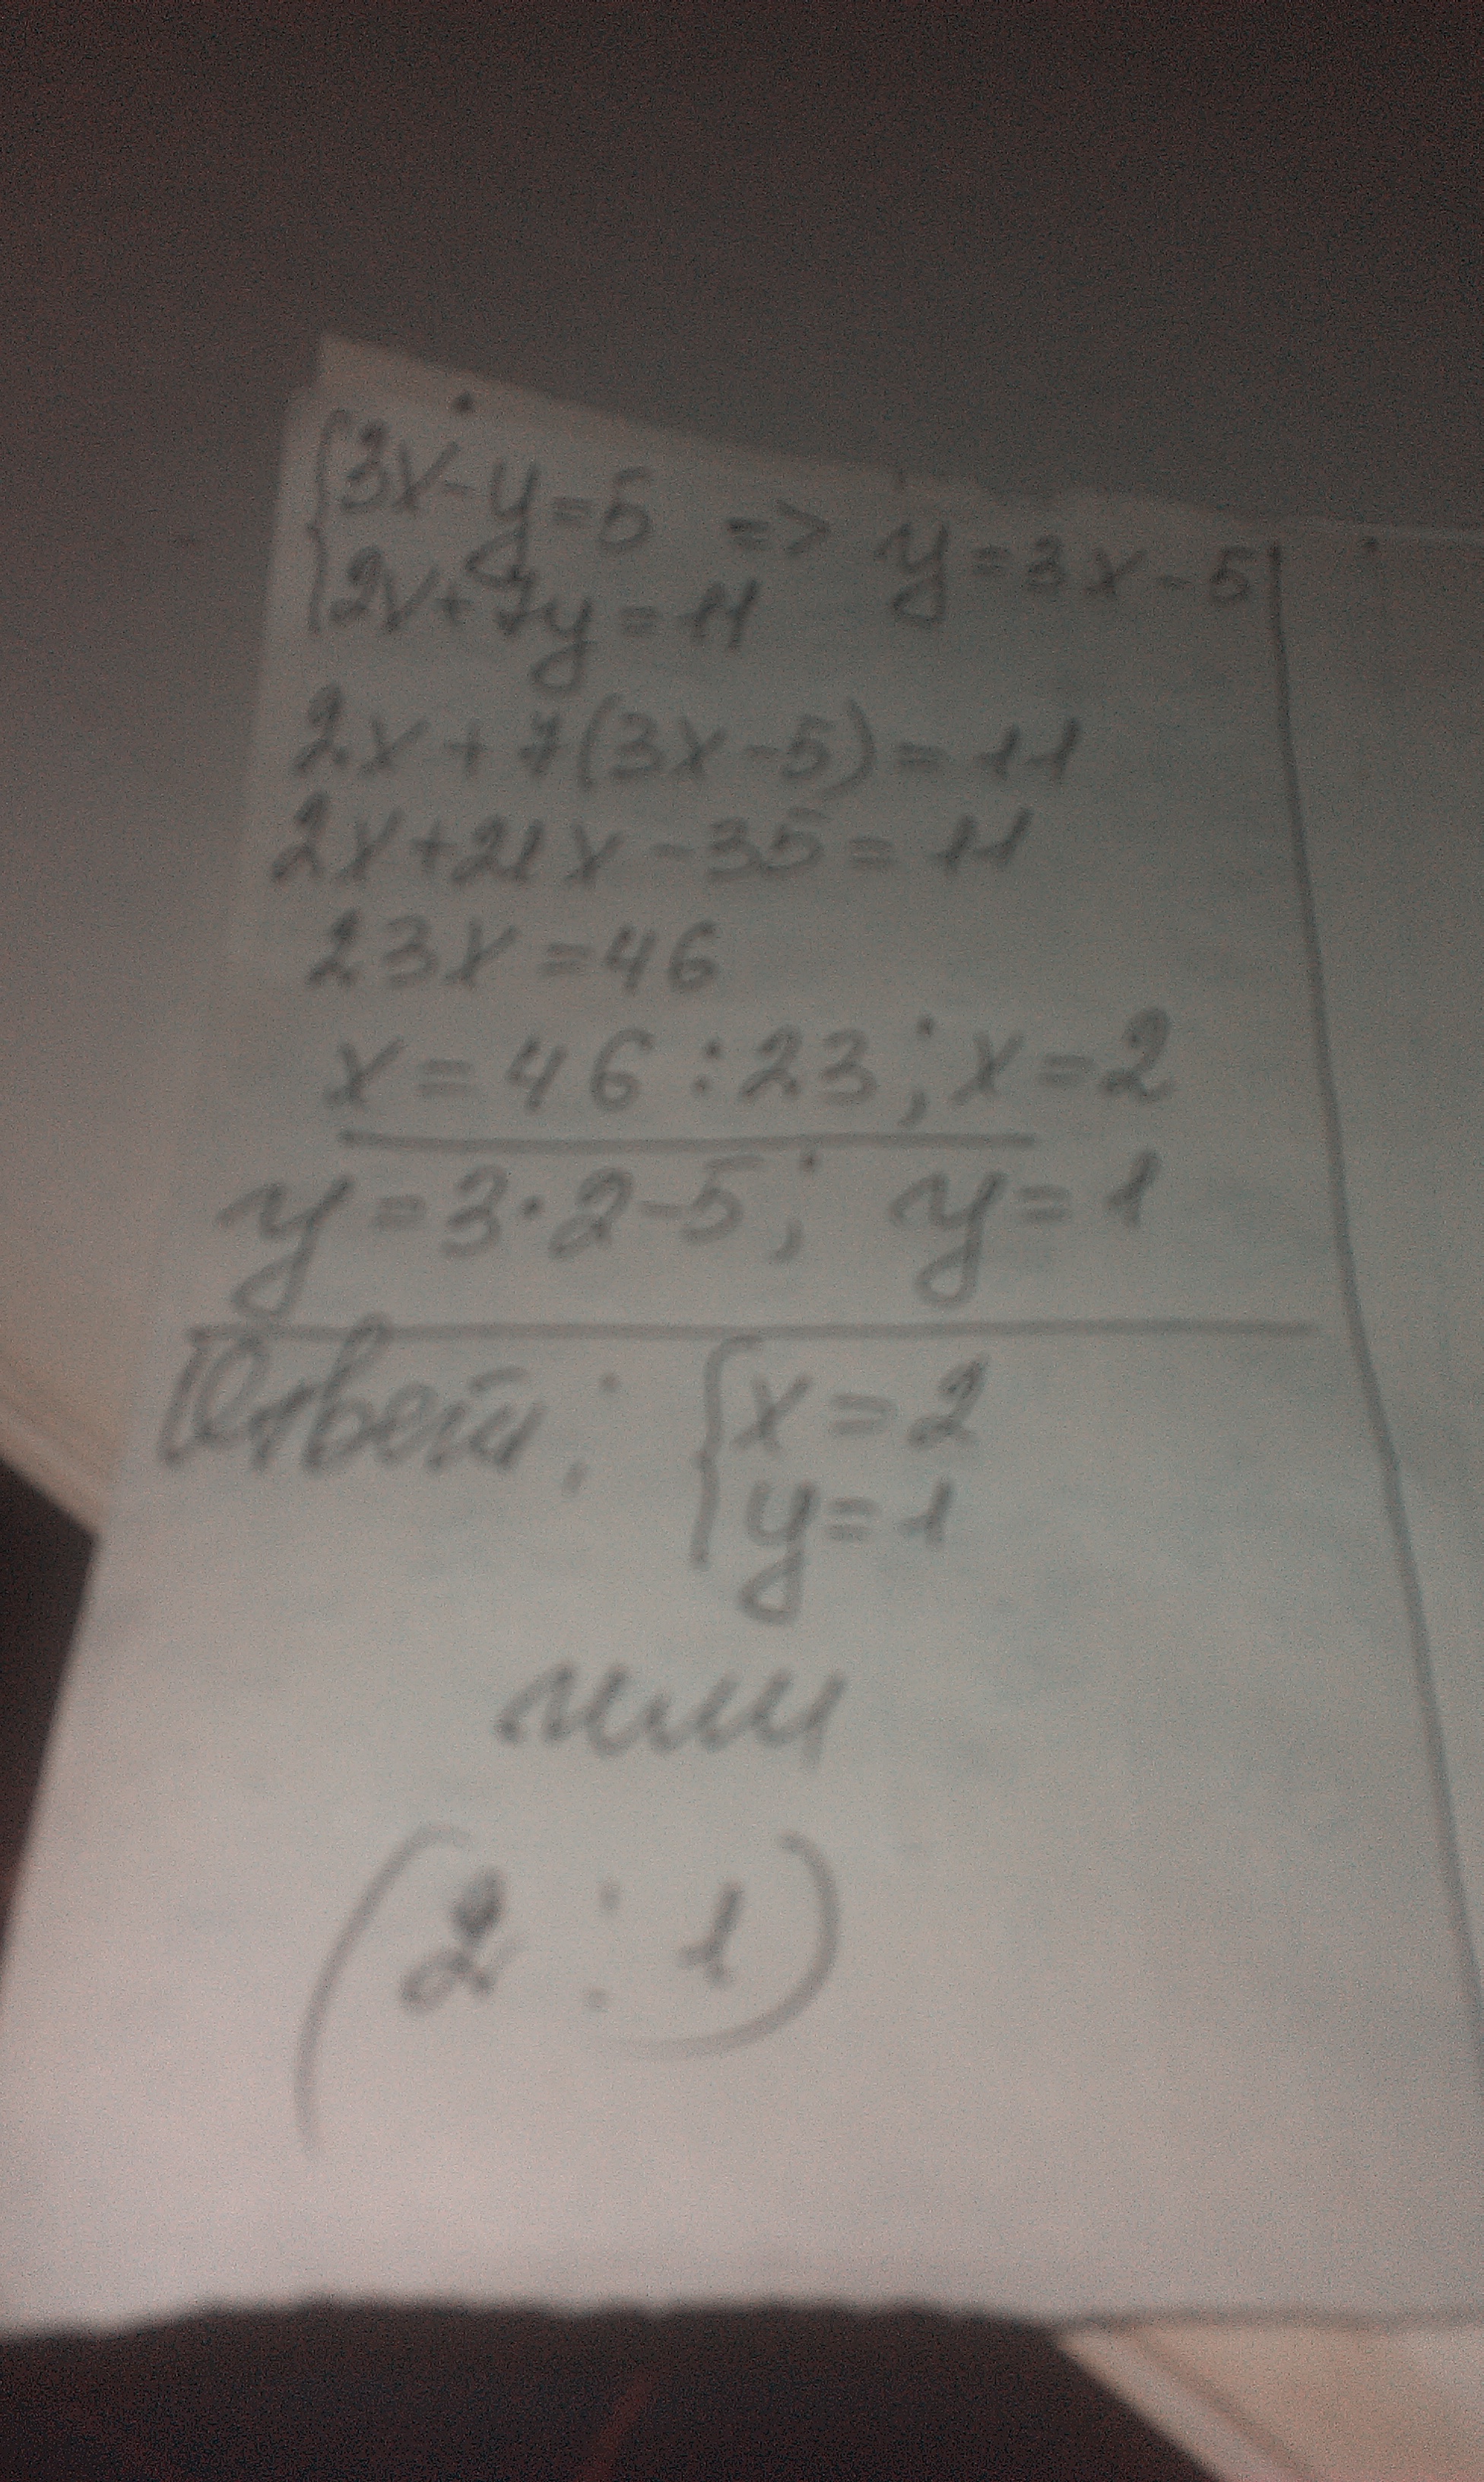 {3x-y=5 => y=3x-5
{2x+7y=11
2x+7(3x-5)=11
2x+21x-35=11
23x=46
x=46:23; x=2
y=3·2-5; y=1
Ответ: {x=2
{y=1
или
(2;1)